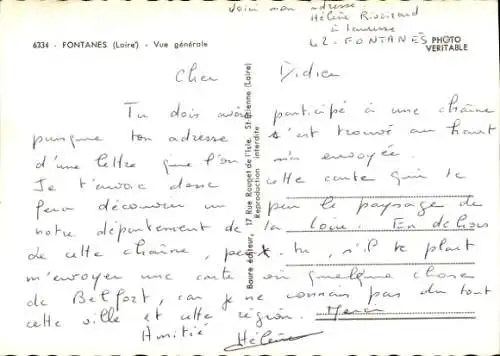 Voici mon adresse
Hélène
à Lavieure
42 - FONTANÈS
6334 - FONTANES (Loire) - Vue générale
PHOTO
VERITABLE
Cher Didier
Tu dois avoir participé à une chaîne
puisque ton adresse s'est trouvé au haut
d'une lettre que l'on m'a envoyée.
Je t'envoie donc cette carte qui te
fera découvrir un peu le paysage de
notre département de la Loire. En dehors
de cette chaîne, peux-tu, s'il te plaît
m'envoyer une carte où quelque chose
de Belfort, car je ne connais pas du tout
cette ville et cette région. Merci
Amitié Hélène
Baure éditeur, 17 Rue Rouget de l'Isle, St-Etienne (Loire)
Reproduction interdite